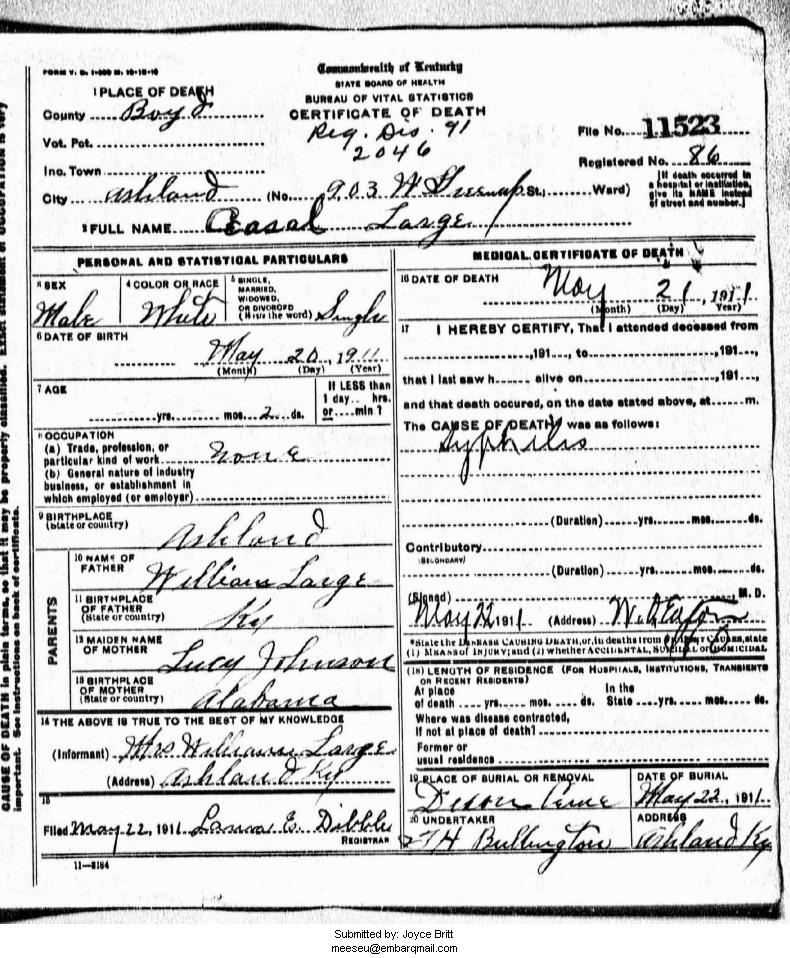 FORM V. S. 1-
Commonwealth of Kentucky
STATE BOARD OF HEALTH
BUREAU OF VITAL STATISTICS
CERTIFICATE OF DEATH
Reg. Dis. 91
2046
1 PLACE OF DEATH
County Boyd
Vot. Pct.
Inc. Town
City Ashland (No. 903 W Greenup St.) Ward)
File No. 11523
Registered No. 86
[If death occurred in a hospital or institution, give its NAME instead of street and number.]
2 FULL NAME Large
PERSONAL AND STATISTICAL PARTICULARS
3 SEX
Male
4 COLOR OR RACE
White
5 SINGLE, MARRIED, WIDOWED, OR DIVORCED (Write the word) Single
6 DATE OF BIRTH
May 20, 1911
(Month) (Day) (Year)
7 AGE
yrs. mos. 2 ds.
If LESS than 1 day hrs. or min?
8 OCCUPATION
(a) Trade, profession, or particular kind of work None
(b) General nature of industry business, or establishment in which employed (or employer)
9 BIRTHPLACE
(State or country)
Ashland
PARENTS
10 NAME OF FATHER
William Large
11 BIRTHPLACE OF FATHER
(State or country)
Ky
12 MAIDEN NAME OF MOTHER
Lucy Johnson
13 BIRTHPLACE OF MOTHER
(State or country)
Alabama
14 THE ABOVE IS TRUE TO THE BEST OF MY KNOWLEDGE
(Informant) Mrs William Large
(Address) Ashland Ky
15
Filed May 22, 1911 Laura E. Dibble
REGISTRAR
11-3184
MEDICAL CERTIFICATE OF DEATH
16 DATE OF DEATH
May 21, 1911
(Month) (Day) (Year)
17 I HEREBY CERTIFY, That I attended deceased from
,191 , to ,191 ,
that I last saw h alive on ,191 ,
and that death occured, on the date stated above, at m.
The CAUSE OF DEATH was as follows:
Syphilis
(Duration) yrs. mos. ds.
Contributory
(SECONDARY)
(Duration) yrs. mos. ds.
(Signed) , M. D.
May 22 1911 (Address) W. Eaton
*State the DISEASE CAUSING DEATH, or, in deaths from VIOLENT CAUSES, state
(1) MEANS of INJURY; and (2) whether ACCIDENTAL, SUICIDAL or HOMICIDAL
(18) LENGTH OF RESIDENCE (FOR HOSPITALS, INSTITUTIONS, TRANSIENTS OR RECENT RESIDENTS)
At place of death yrs. mos. ds. In the State yrs. mos. ds.
Where was disease contracted, if not at place of death?
Former or usual residence
19 PLACE OF BURIAL OR REMOVAL
Dixon Ceme
DATE OF BURIAL
May 22, 1911
20 UNDERTAKER
Bullington
ADDRESS
Ashland Ky
CAUSE OF DEATH in plain terms, so that it may be properly classified. Exact statement of OCCUPATION is very
important. See instructions on back of certificate.
Submitted by: Joyce Britt
meeseu@embarqmail.com